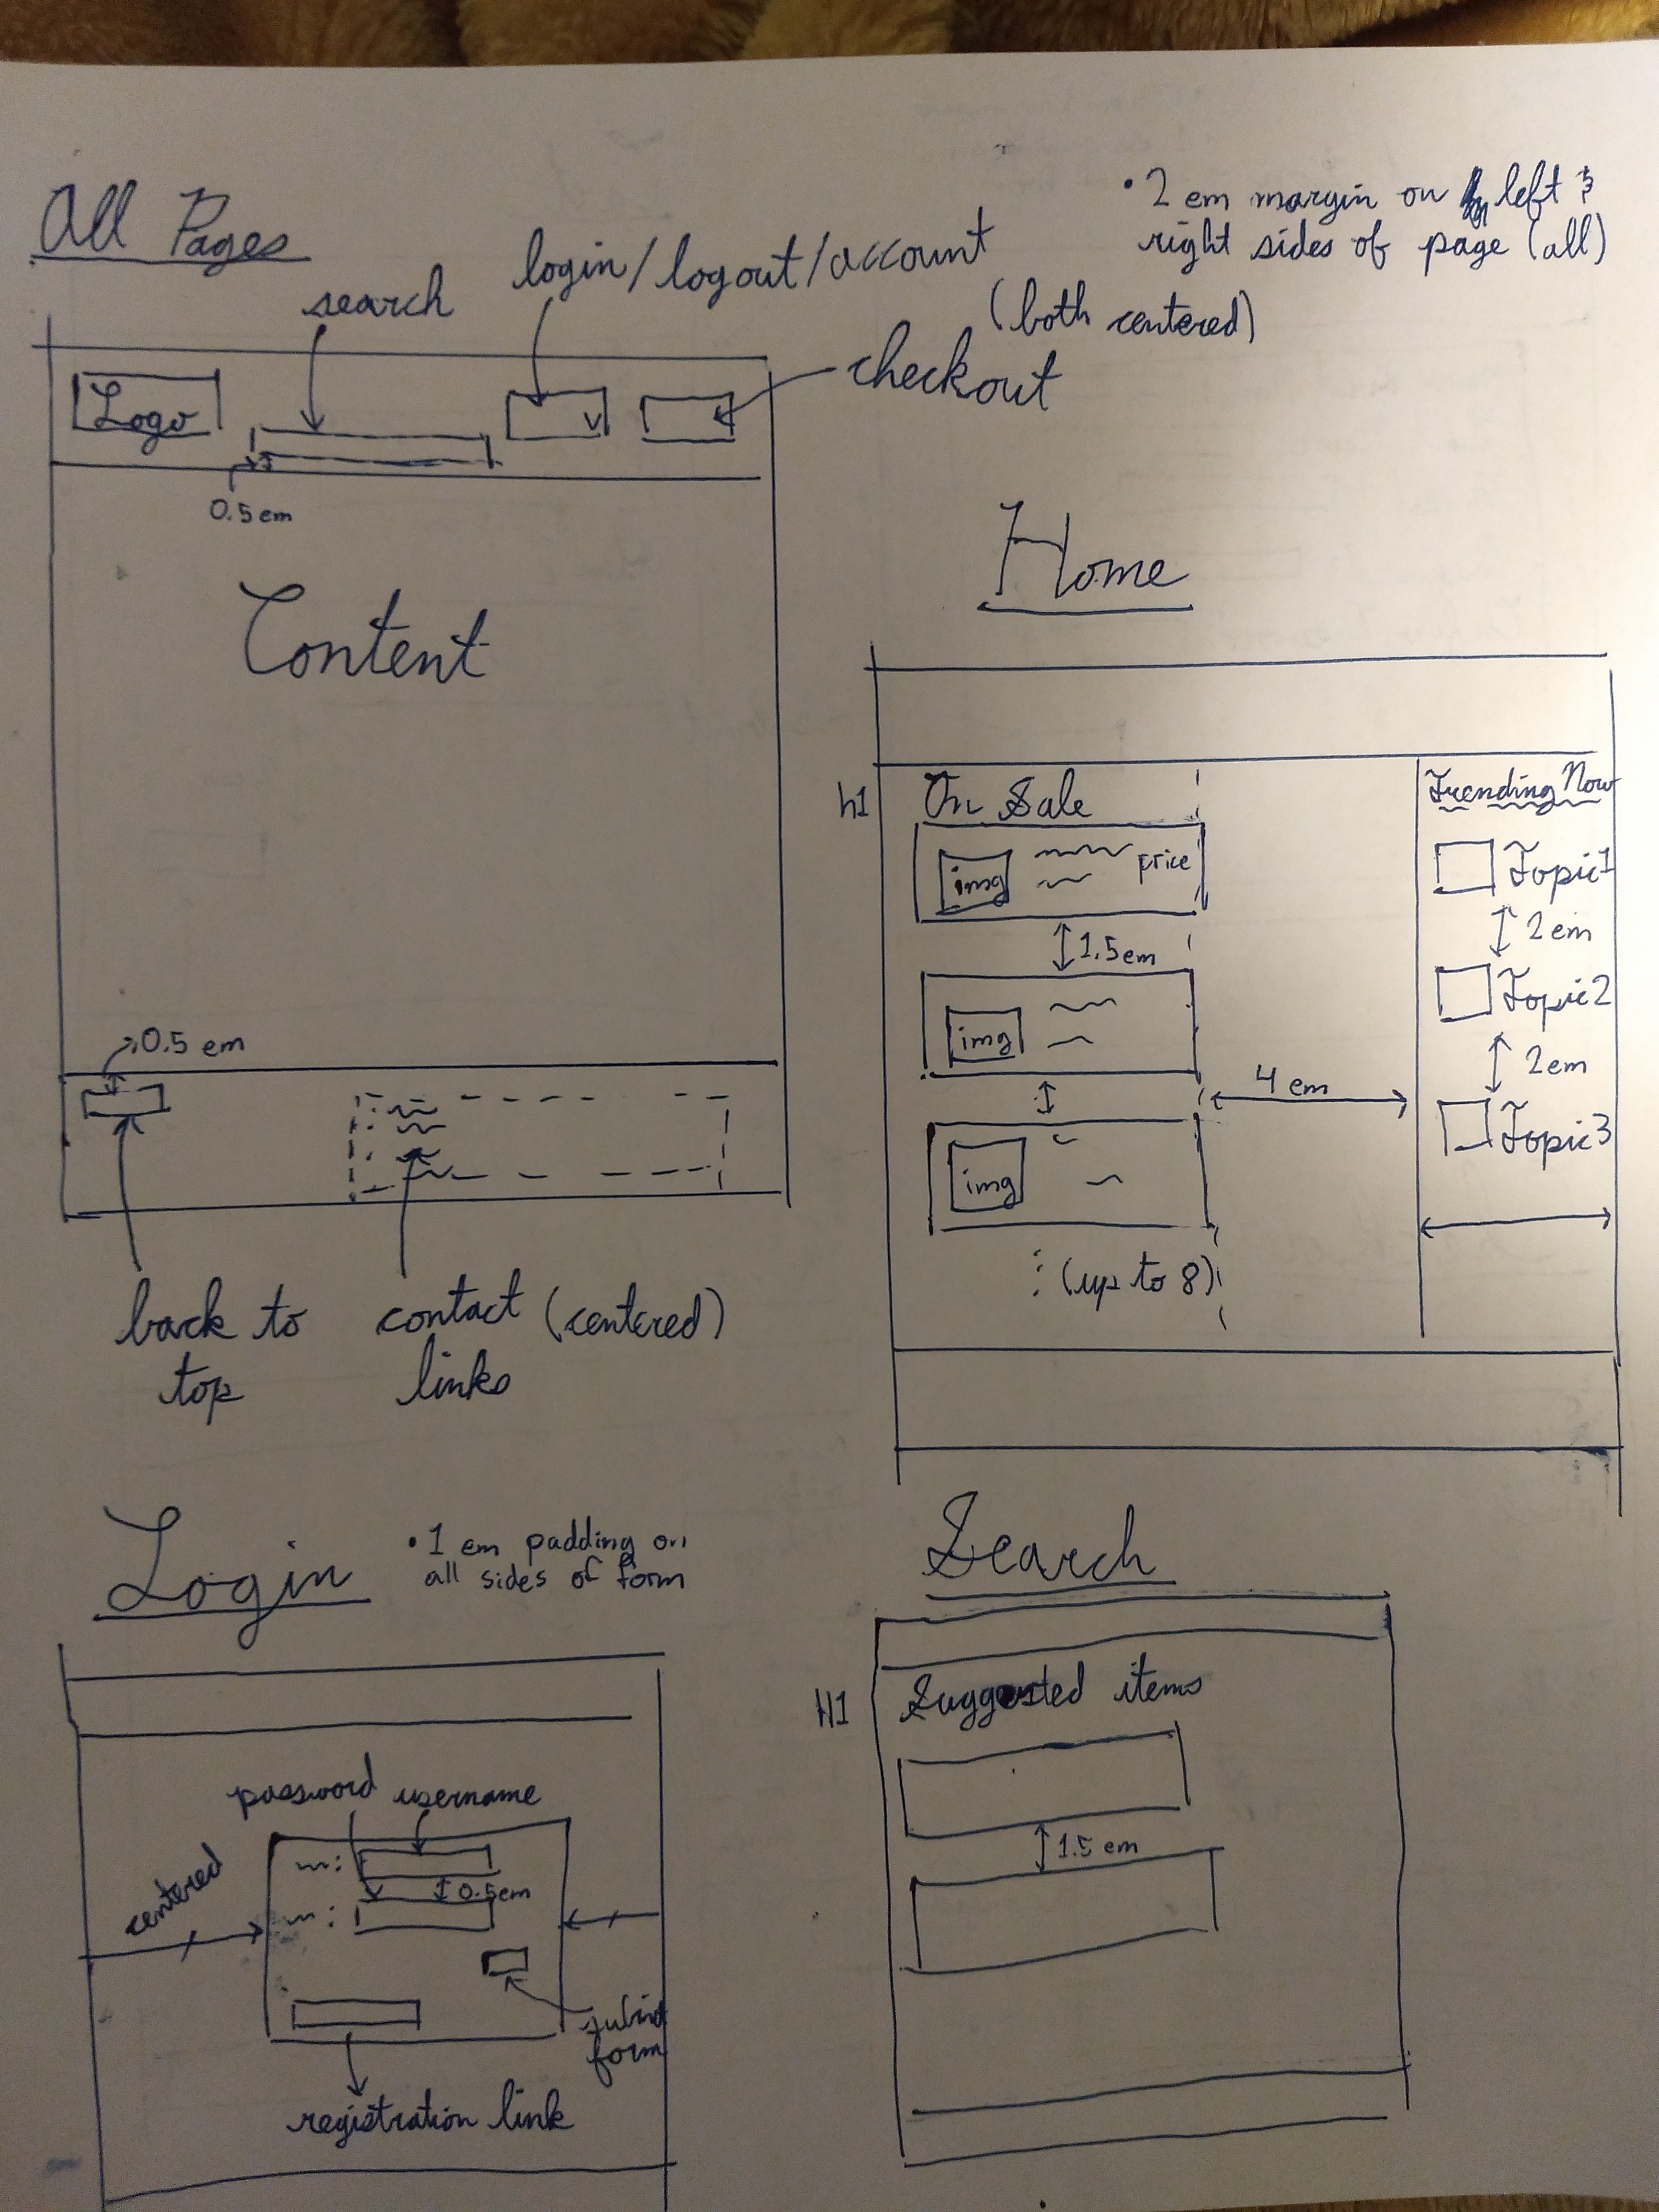 All Pages
• 2 em margin on left &
right sides of page (all)
search
login/logout/account
(both centered)
checkout
Logo
V
0.5 em
Content
0.5 em
back to
top
contact (centered)
links
Home
h1
On Sale
Trending Now
img
price
Topic 1
1.5 em
2 em
img
Topic 2
4 em
2 em
img
Topic 3
(up to 8)
Login
• 1 em padding on
all sides of form
password
username
centered
0.5em
form
registration link
Search
H1
Suggested items
1.5 em